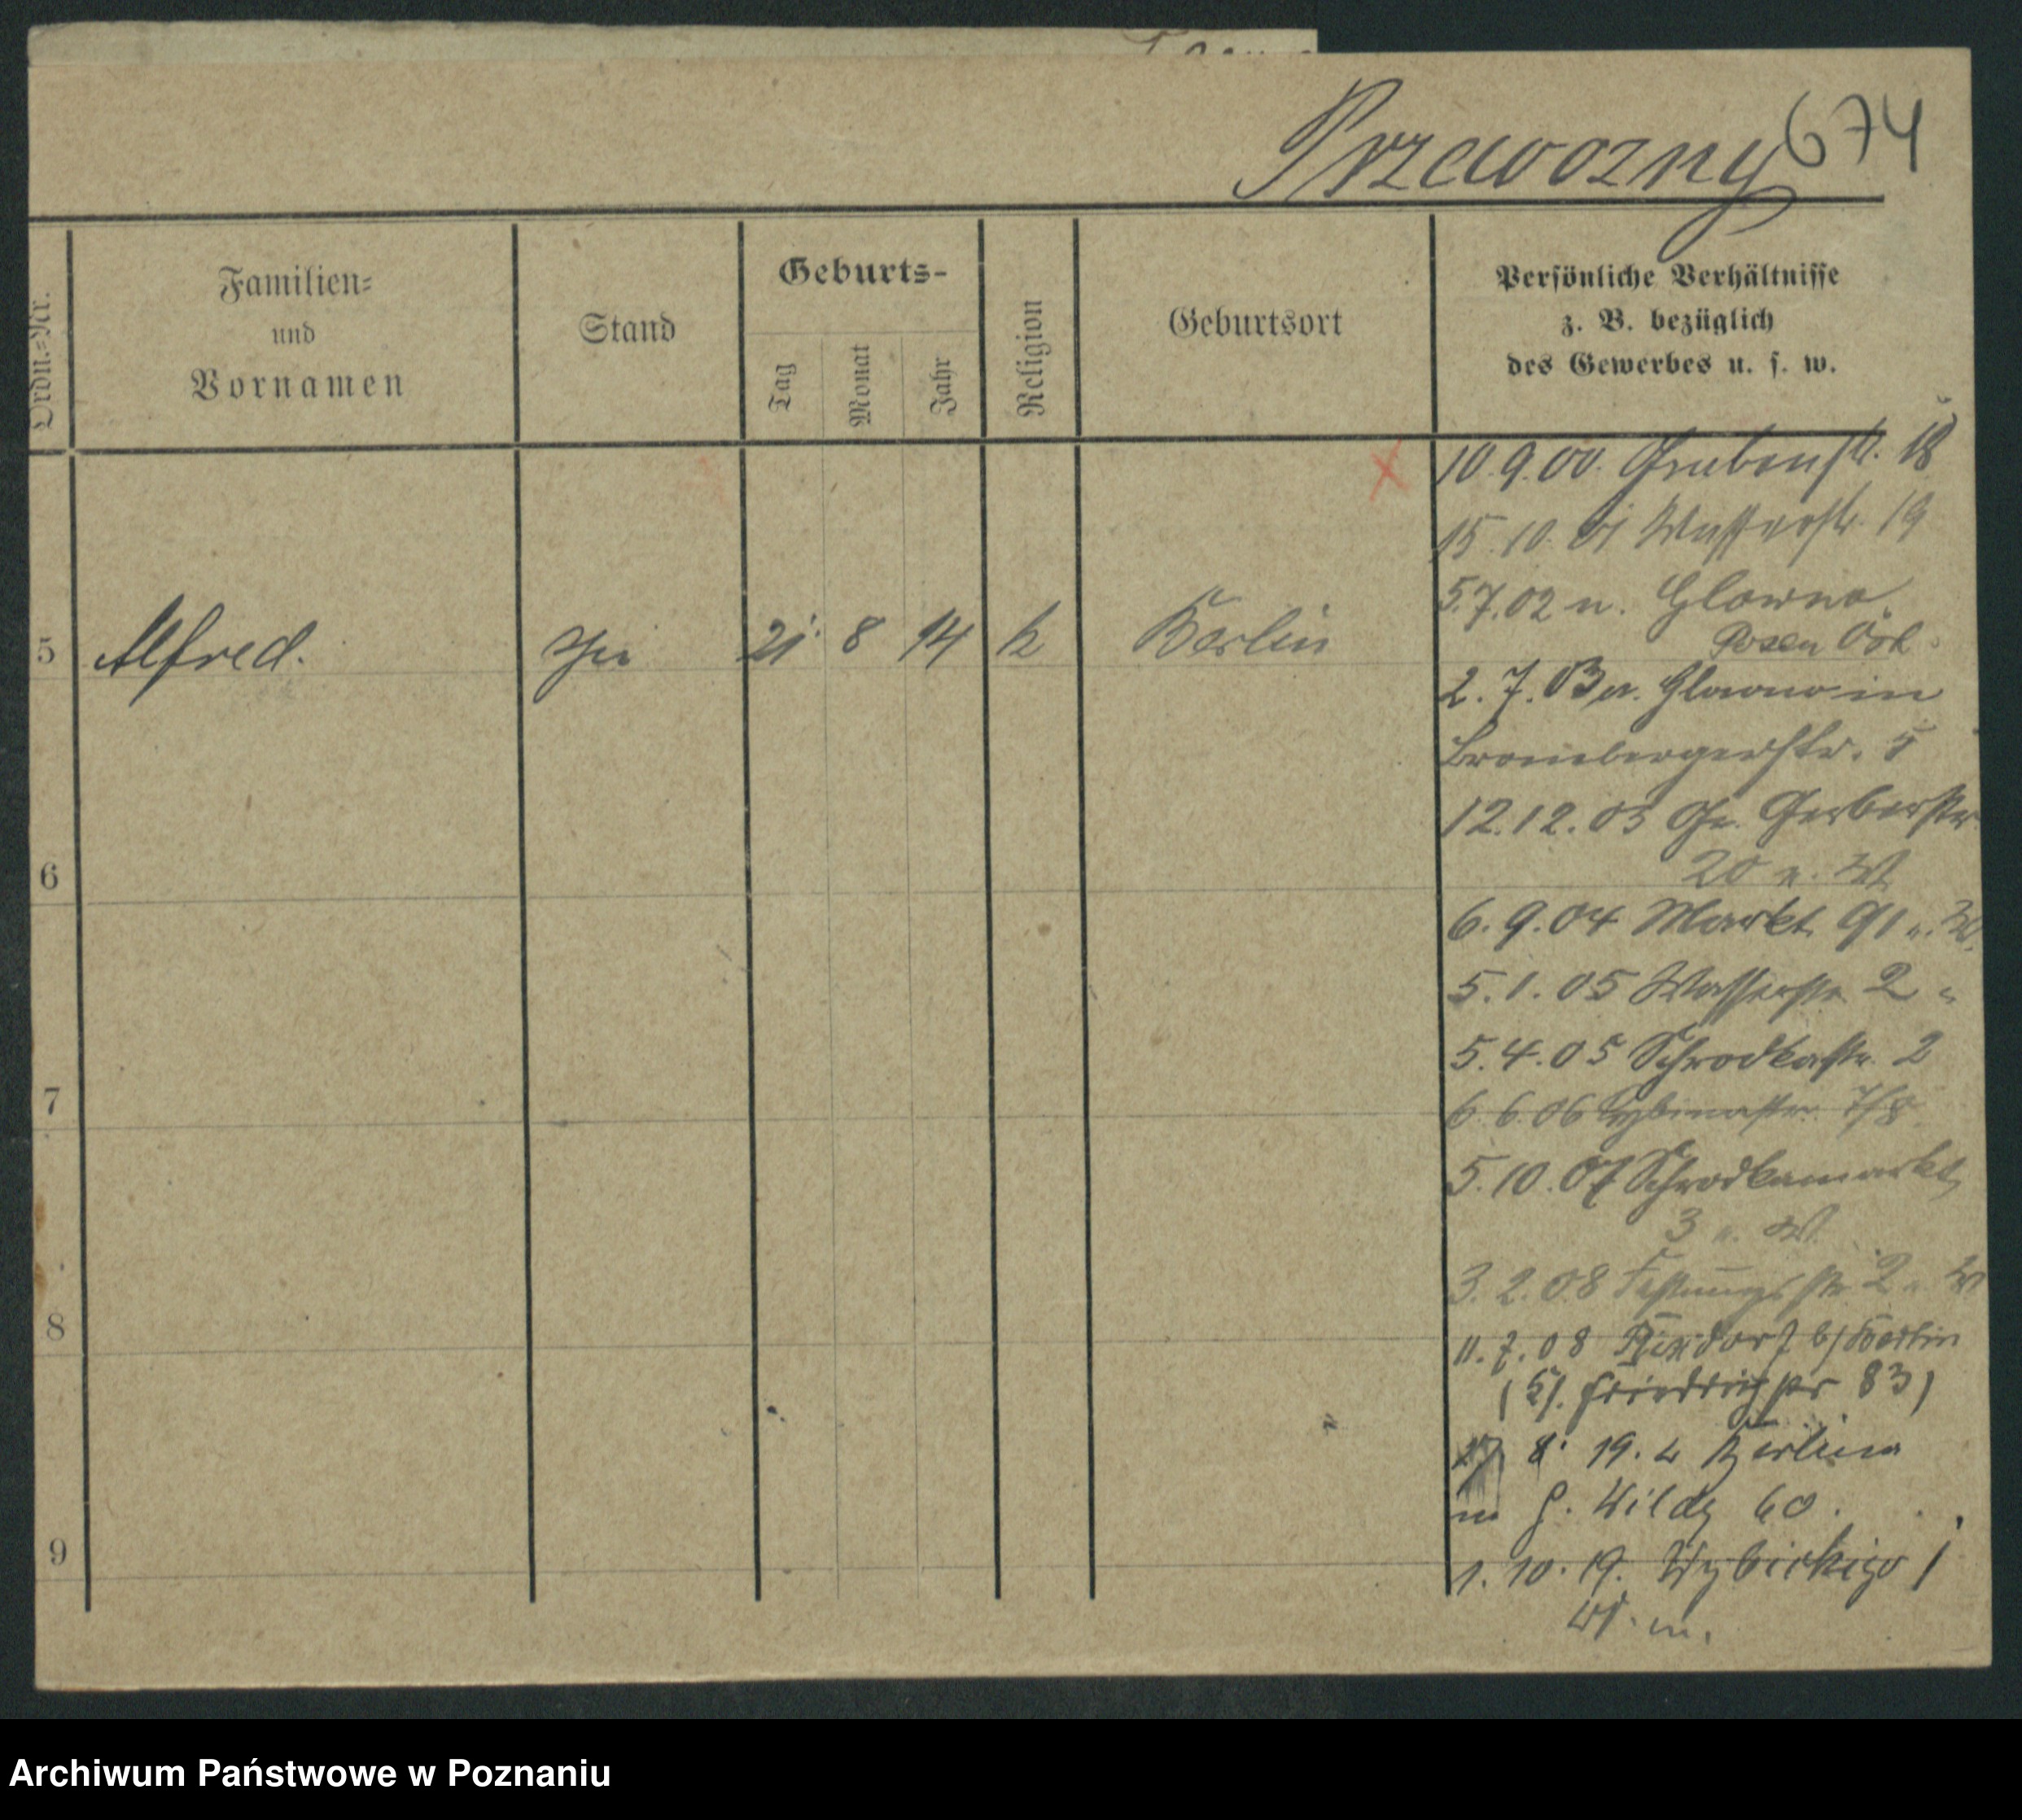 Przewozny 674
Ordn.=Nr.
Familien=
und
Vornamen
Stand
Geburts-
Tag
Monat
Jahr
Religion
Geburtsort
Persönliche Verhältnisse
z. B. bezüglich
des Gewerbes u. s. w.
10.9.00. Grabenstr. 18
15.10.01 Wasserstr. 19
5.7.02 n. Glowno
Posen Ost
5 Alfred. 21. 8 14 k Berlin
2.7.03 v. Glowno in
Brombergerstr. 5
12.12.03 Gr. Gerberstr
20 n. W.
6
6.9.04 Markt 91 n. W.
5.1.05 Wasserstr. 2 "
5.4.05 Schrodkastr. 2
7
6.6.06 Cybinastr. 7/8
5.10.07 Schrodkamarkt
3 n. W.
3.2.08 Festungsstr. 2 n. W
8
11.7.08 Rixdorf b/Berlin
Friedrichstr 83)
8. 19. z Berlina
na G. Wildę 60.
9
1. 10. 19. Wybickiego 1
W. m.
Archiwum Państwowe w Poznaniu